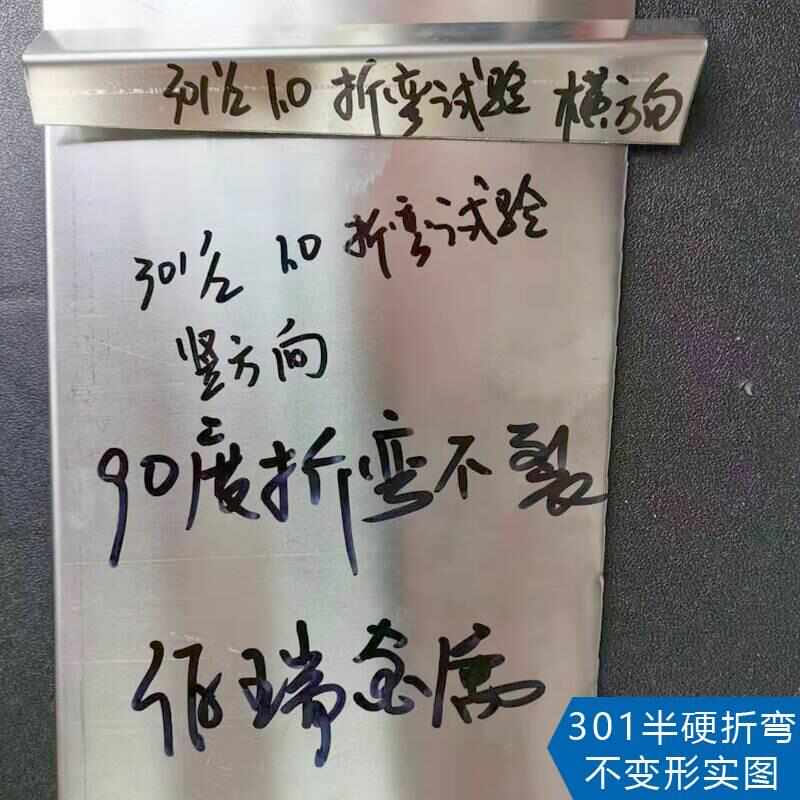 301½ 1.0 折弯试验 横方向
301½ 1.0 折弯试验
竖方向
90度折弯不裂
伝瑞金属
301半硬折弯
不变形实图